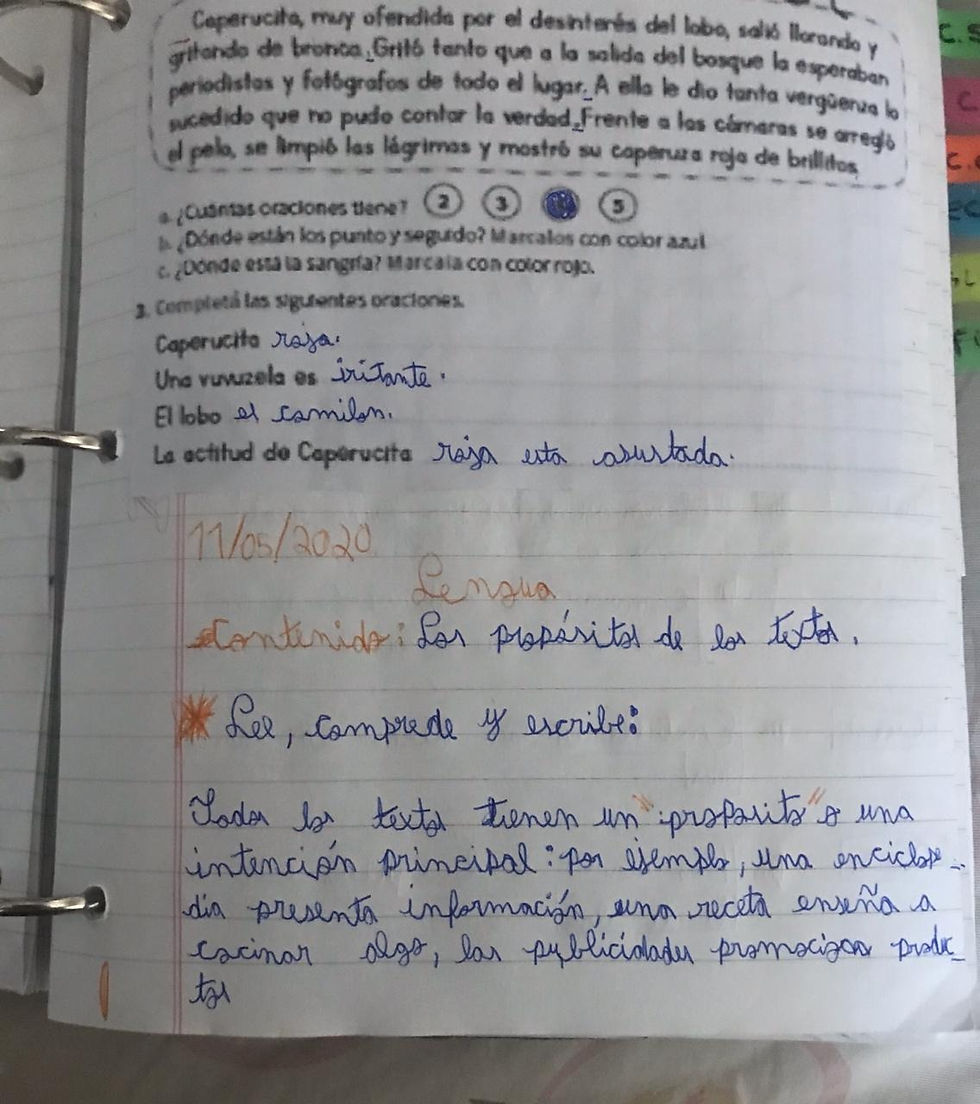 Caperucita, muy ofendida por el desinterés del lobo, salió llorando y
gritando de bronca. Gritó tanto que a la salida del bosque la esperaban
periodistas y fotógrafos de todo el lugar. A ella le dio tanta vergüenza lo
sucedido que no pudo contar la verdad. Frente a las cámaras se arregló
el pelo, se limpió las lágrimas y mostró su caperuza roja de brillitos.
a. ¿Cuántas oraciones tiene? 2 3 5
b. ¿Dónde están los punto y seguido? Marcalos con color azul
c. ¿Dónde está la sangría? Marcala con color rojo.
3. Completá las siguientes oraciones.
Caperucita roja.
Una vuvuzela es iritante.
El lobo es comilon.
La actitud de Caperucita roja esta asustada.
11/05/2020
Lengua
Contenido: Los propósitos de los textos.
Lee, comprede y escribe:
Todos los textos tienen un "proposito" o una
intención principal: por ejemplo, una enciclope-
dia presenta información, una receta enseña a
cocinar algo, las publicidades promocionan produc_
tos
C.S
C
C.